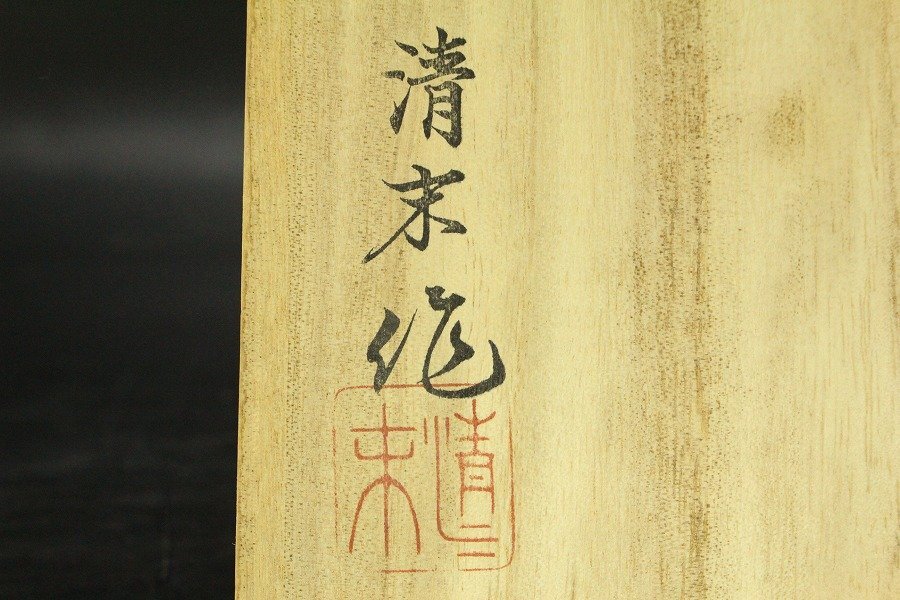 清末作
清末